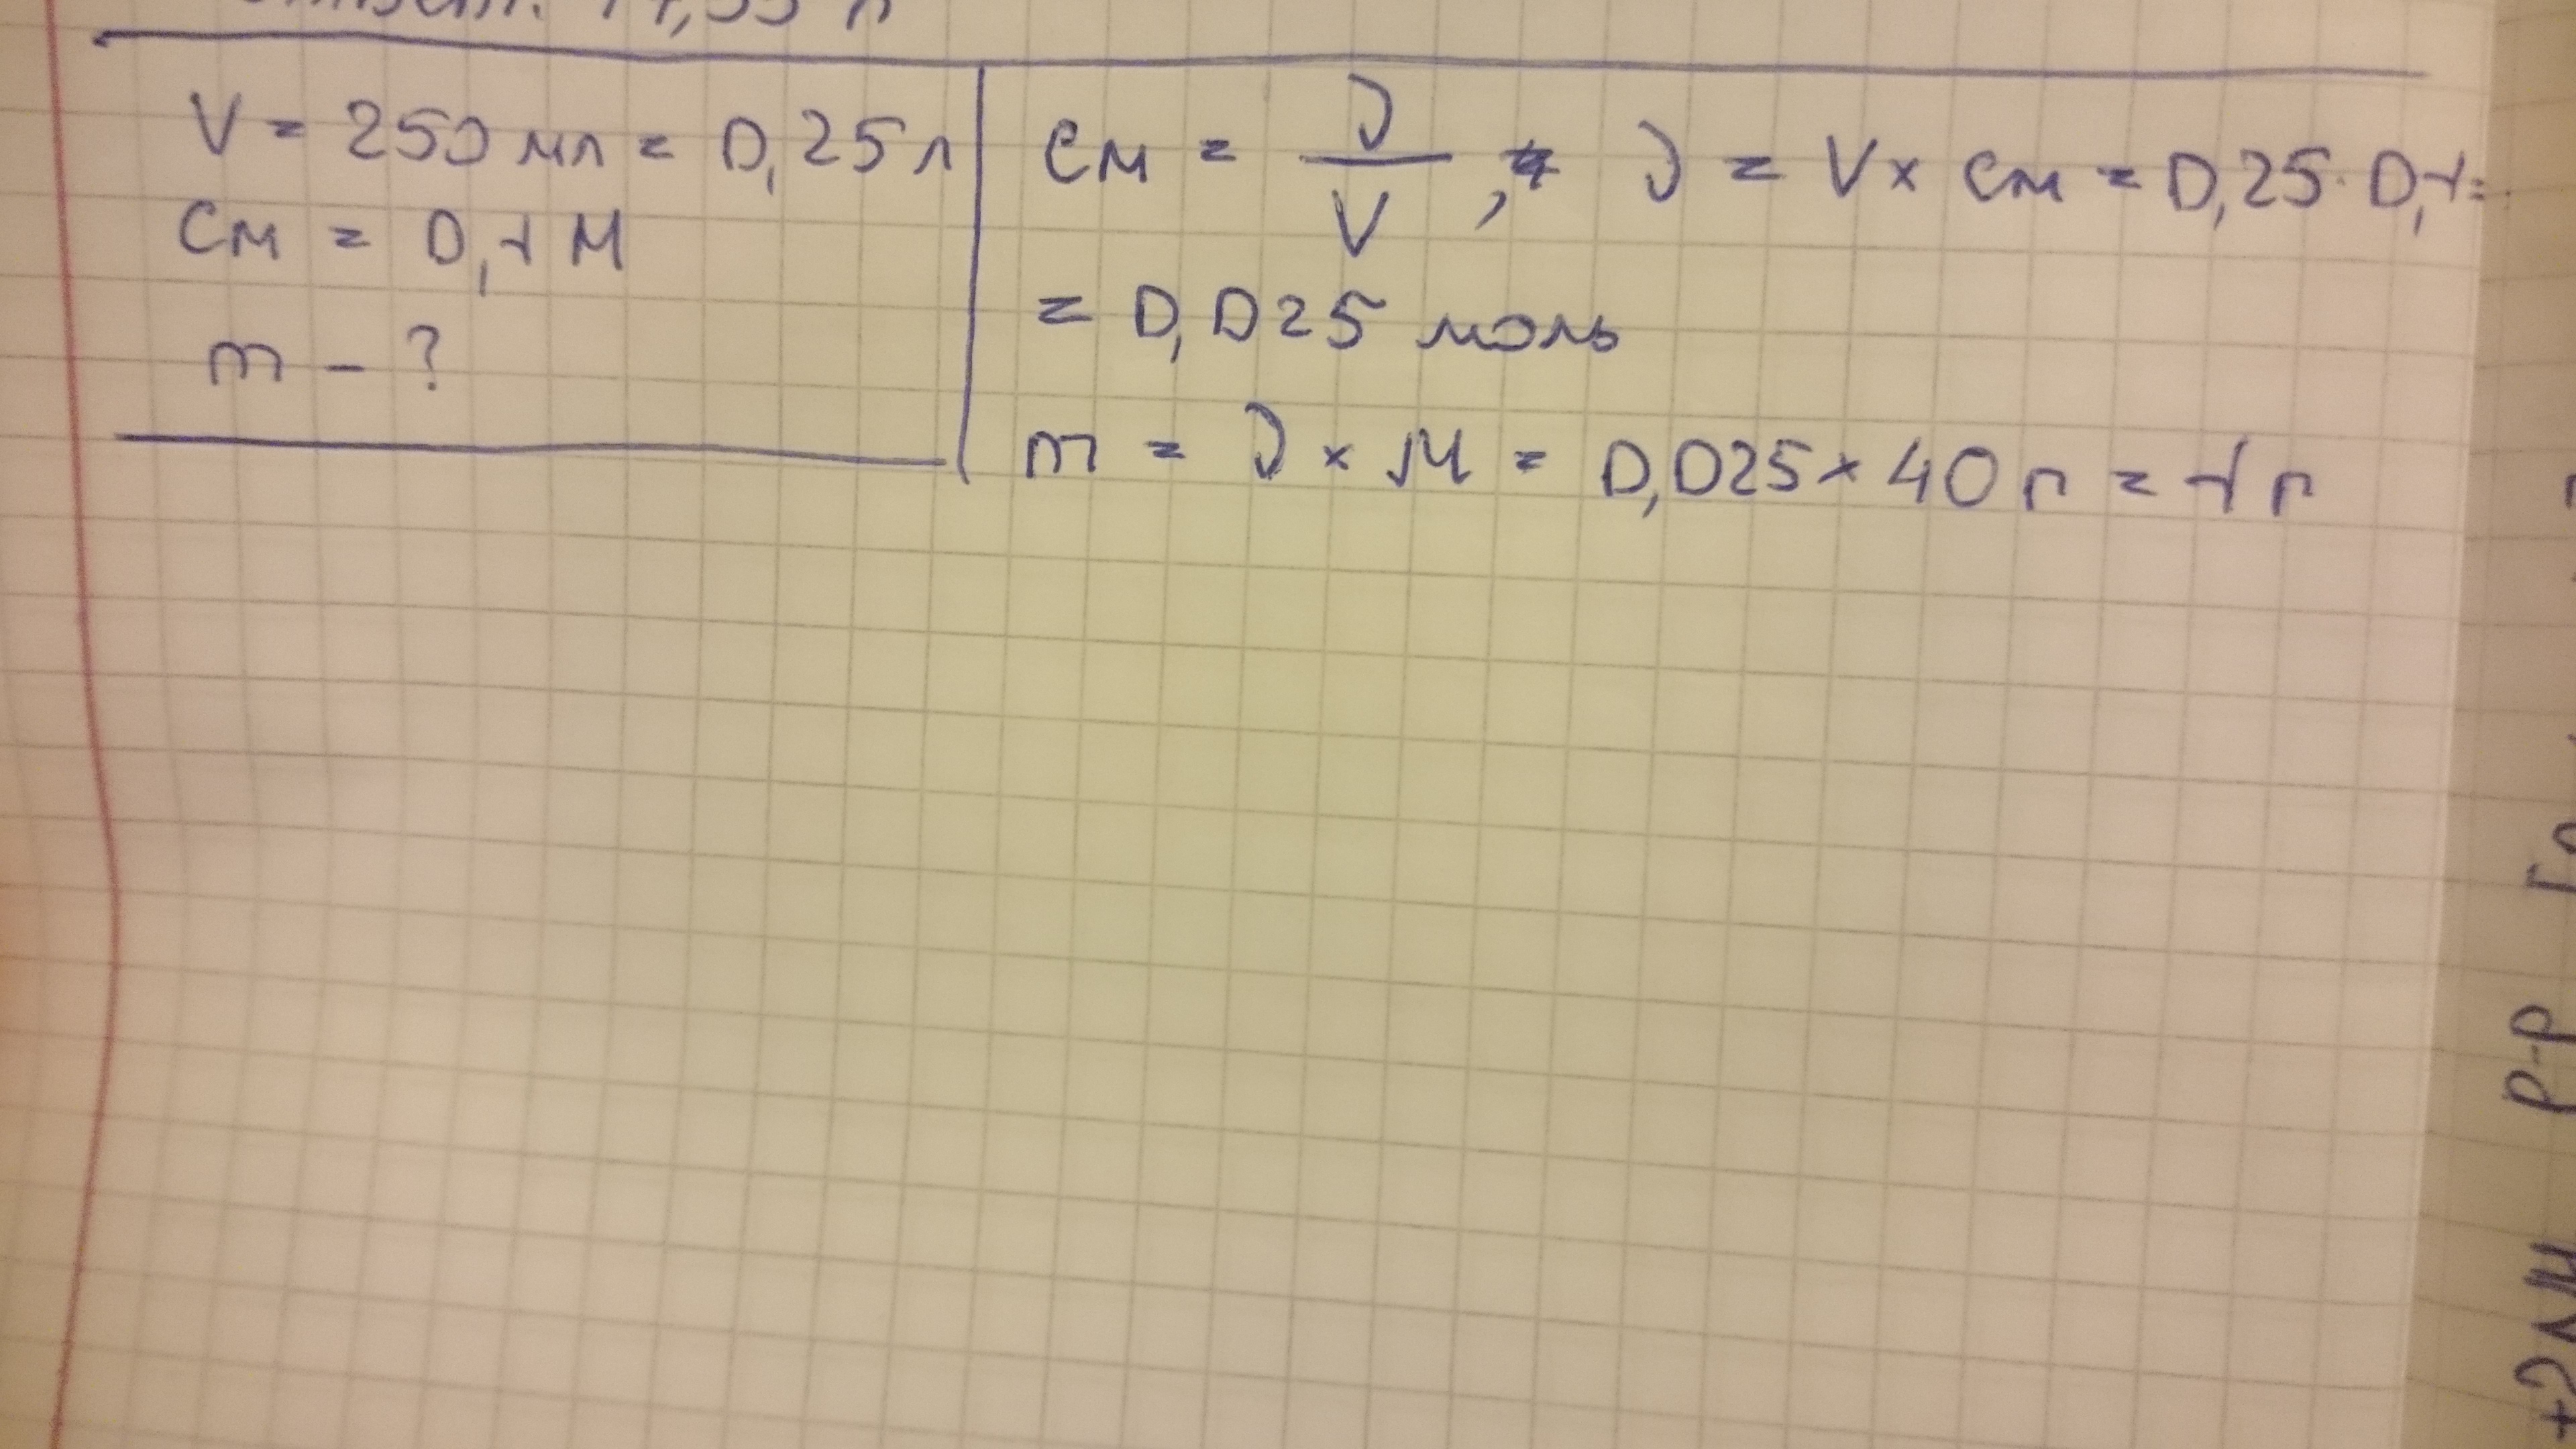 14,55 л
V = 250 мл = 0,25 л
См = 0,1 М
m - ?
См = ν/V, ν = V × См = 0,25 · 0,1 =
= 0,025 моль
m = ν × M = 0,025 × 40 г = 1 г
р-р
+2NH